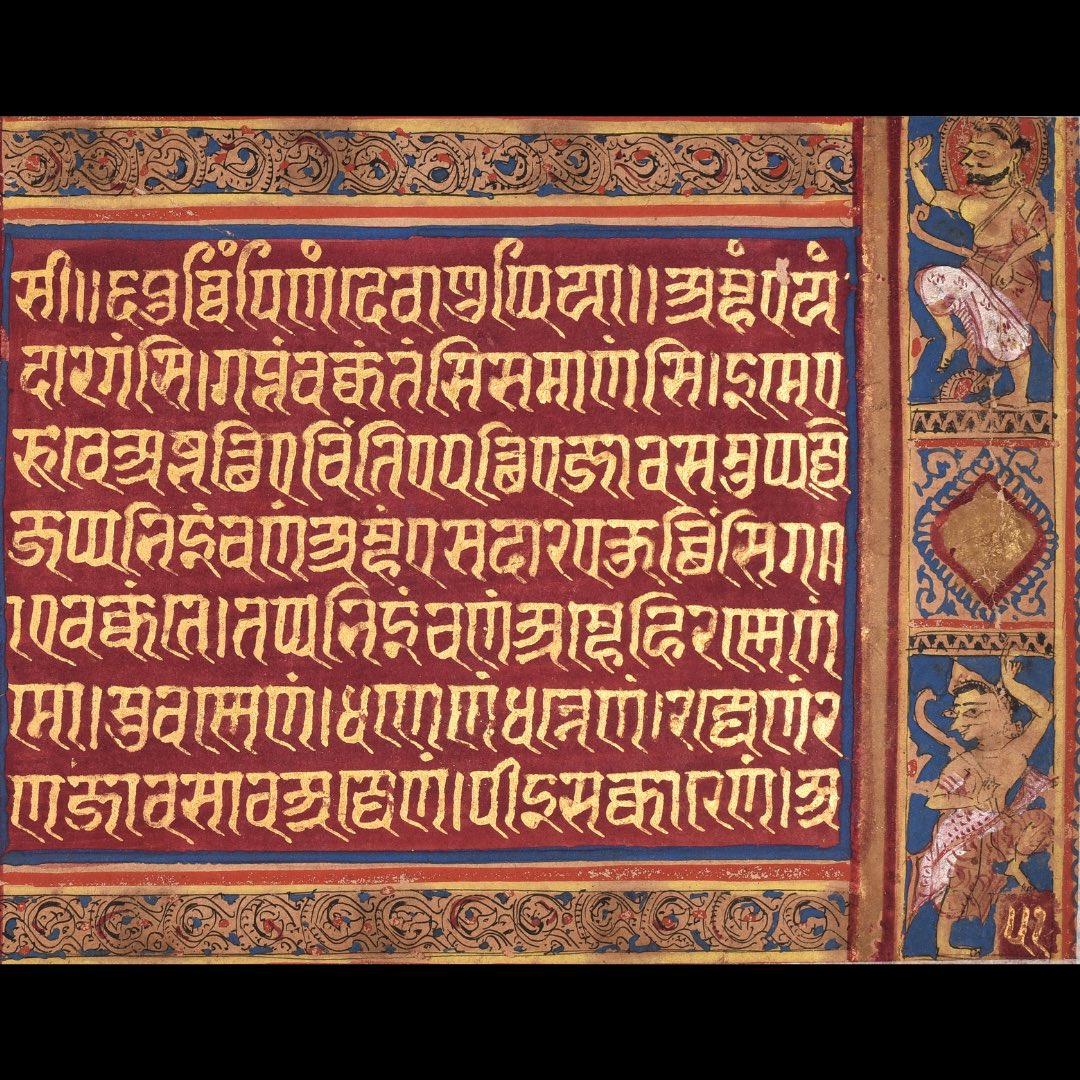 सी॥छ पुव्विं पि णं देवाणुप्पिया॥अम्हं एयं
दारगंसि।गब्भं वक्कंतंसि समाणंसि।इमे ए
रूवे अब्भत्थिए चिंतिए पत्थिए जाव समुप्पज्जे
जप्पभिइं च णं अम्हं एस दारए कुच्छिंसि गभ
ए वक्कंते।तप्पभिइं च णं अम्हे हिरण्णेणं
मो।सुवण्णेणं।धणेणं धन्नेणं।रज्जेणं र
जाव सावइज्जेणं।पीइसक्कारेणं।अ
५२